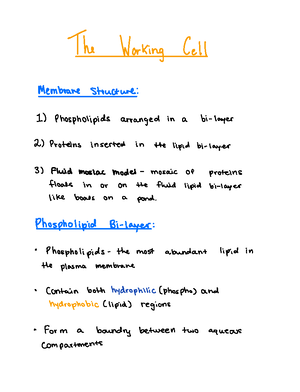 The Working Cell
Membrane Structure:
1) Phospholipids arranged in a bi-layer
2) Proteins inserted in the lipid bi-layer
3) Fluid mosiac model - mosaic of proteins
floats in or on the fluid lipid bi-layer
like boats on a pond.
Phospholipid Bi-layer:
• Phospholipids - the most abundant lipid in
the plasma membrane
• Contain both hydrophilic (phospho) and
hydrophobic (lipid) regions
• Form a boundry between two aqueous
compartments